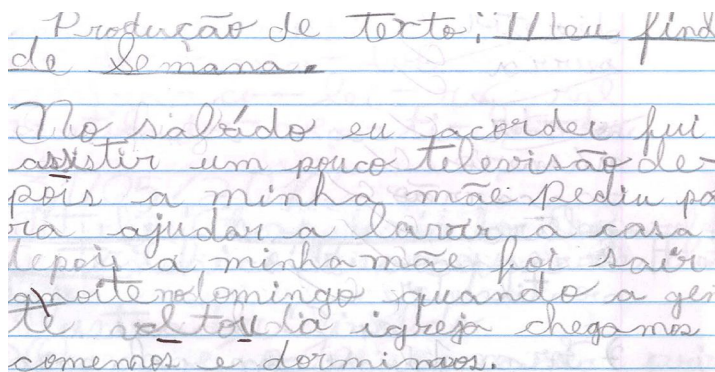 Produção de texto: Meu find
de Semana.
No sabádo eu acordei fui
assistir um pouco televisão de-
pois a minha mãe pediu pa
ra ajudar a lavar a casa
depois a minha mãe foi sair
a noite no domingo quando a gen
te voltou dia igreja chegamos
comemos e dormimos.